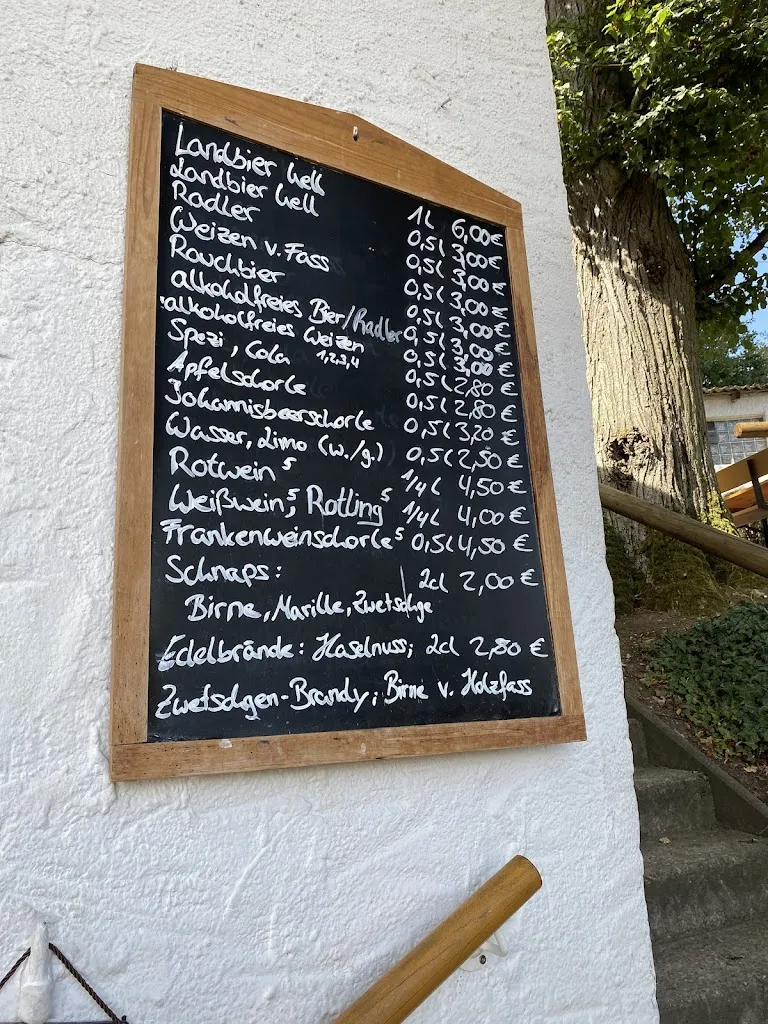 Landbier hell 1L 6,00€
Landbier hell 0,5l 3,00€
Radler 0,5l 3,00€
Weizen v. Fass 0,5l 3,00€
Rauchbier 0,5l 3,00€
alkoholfreies Bier/Radler 0,5l 3,00€
alkoholfreies Weizen 0,5l 3,00€
Spezi, Cola 1,2,3,4 0,5l 2,80€
Apfelschorle 0,5l 2,80€
Johannisbeerschorle 0,5l 3,20€
Wasser, Limo (w./g.) 0,5l 2,50€
Rotwein⁵ 1/4l 4,50€
Weißwein⁵, Rotling⁵ 1/4l 4,00€
Frankenweinschorle⁵ 0,5l 4,50€
Schnaps: 2cl 2,00€
Birne, Marille, Zwetschge
Edelbrände: Haselnuss; 2cl 2,80€
Zwetschgen-Brandy; Birne v. Holzfass